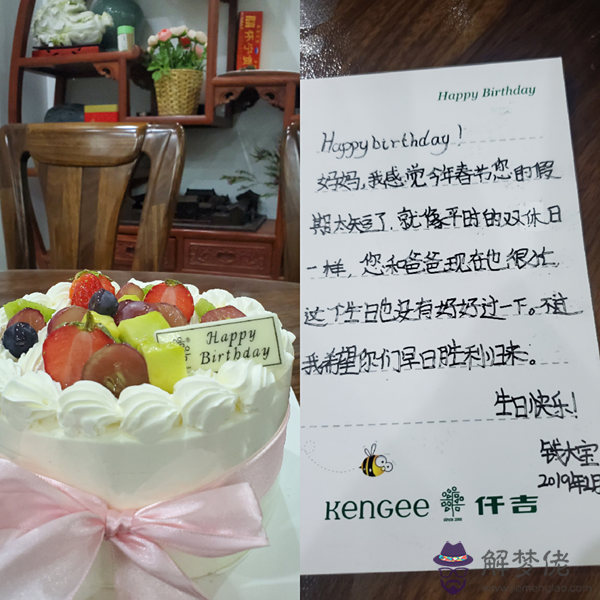 Happy
Birthday
Happy Birthday
Happy birthday!
妈妈,我感觉今年春节您的假
期太短了,就像平时的双休日
一样,您和爸爸现在也很忙,
这个生日也没有好好过一下。不过
我希望你们早日胜利归来。
生日快乐!
钱大宝
2019年2月
KENGEE 仟吉
SINCE
解梦佬